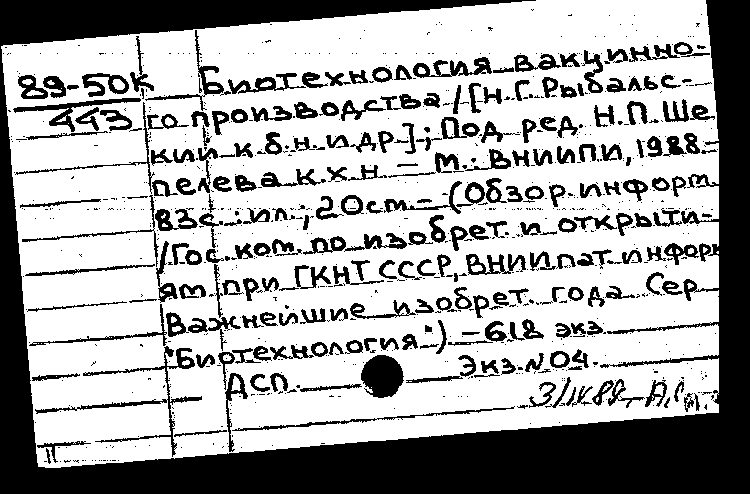 89-50К Биотехнология вакцинно-
443 го производства / [Н.Г. Рыбальс-
кий к.б.н. и др.]; Под ред. Н.П. Ше
пелева к.х.н. – М.: ВНИИПИ, 1988.–
83с.: ил.; 20см.– (Обзор. информ.
/Гос. ком. по изобрет. и открыти-
ям при ГКНТ СССР, ВНИИпат. информ
Важнейшие изобрет. года Сер
"Биотехнология") – 618 экз
Экз. № 04.
ДСП.